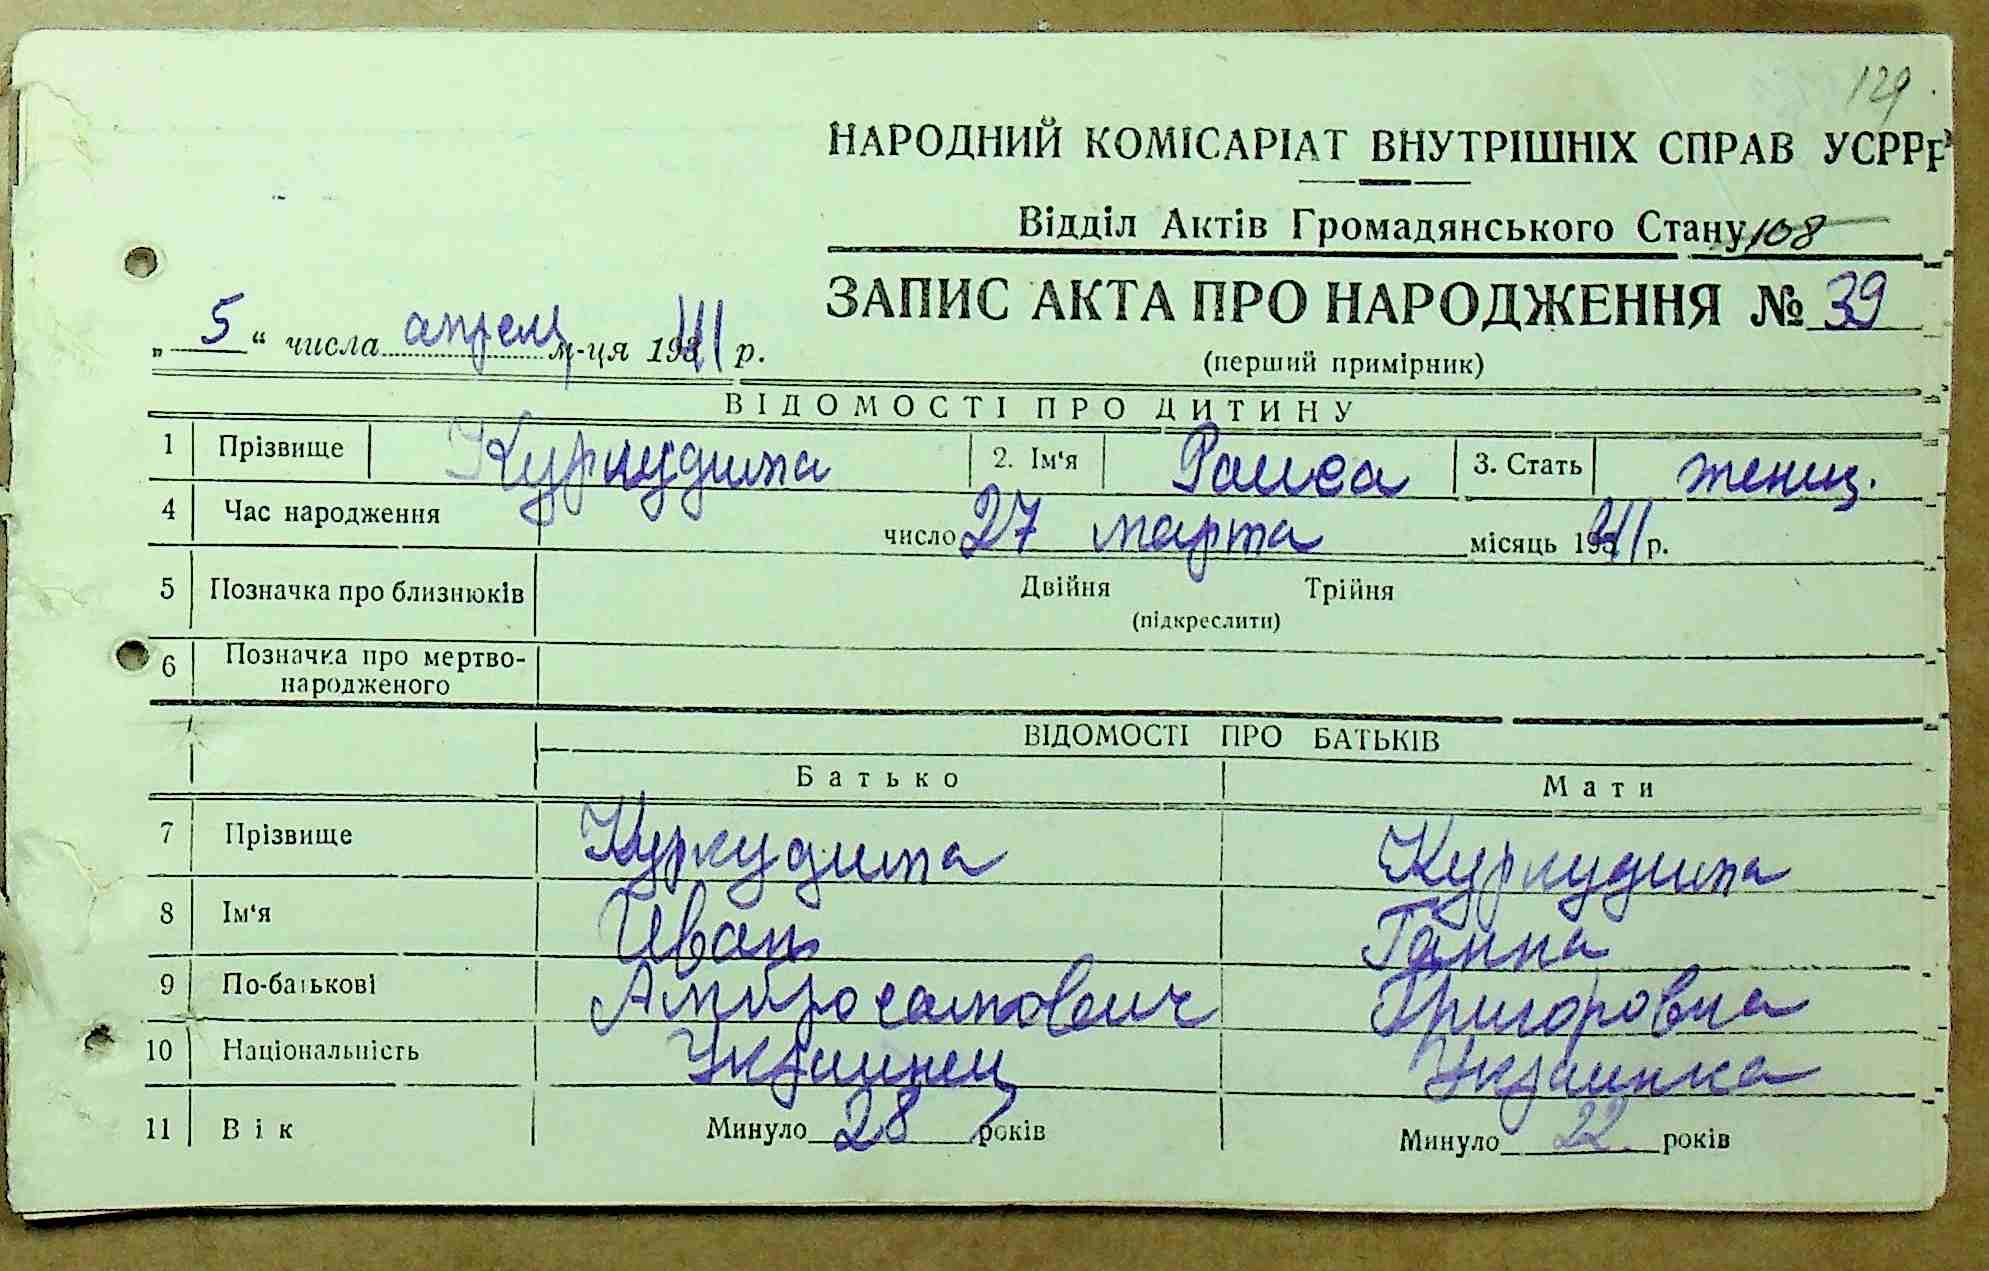 129
НАРОДНИЙ КОМІСАРІАТ ВНУТРІШНІХ СПРАВ УСРР
Відділ Актів Громадянського Стану 108
ЗАПИС АКТА ПРО НАРОДЖЕННЯ № 39
„ 5 “ числа апрель м-ця 1941 р.
(перший примірник)
ВІДОМОСТІ ПРО ДИТИНУ
1 Прізвище Куркудима 2. Ім'я Раиса 3. Стать женщ.
4 Час народження число 27 марта місяць 1941 р.
5 Позначка про близнюків Двійня Трійня
(підкреслити)
6 Позначка про мертво-
народженого
ВІДОМОСТІ ПРО БАТЬКІВ
Батько Мати
7 Прізвище Куркудима Куркудима
8 Ім'я Иван Ганна
9 По-батькові Григоровна
10 Національність Украинец Украинка
11 Вік Минуло 28 років Минуло 22 років